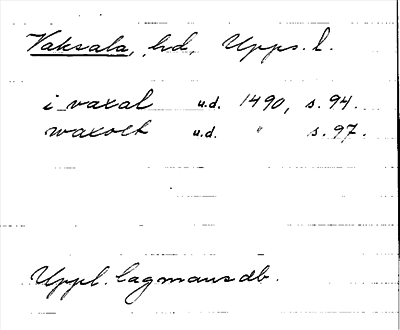 Vaksala, hd, Upps. l.
i vaxal u.d. 1490, s. 94.
waxoch u.d. " s. 97.
Uppl. lagmansdb.